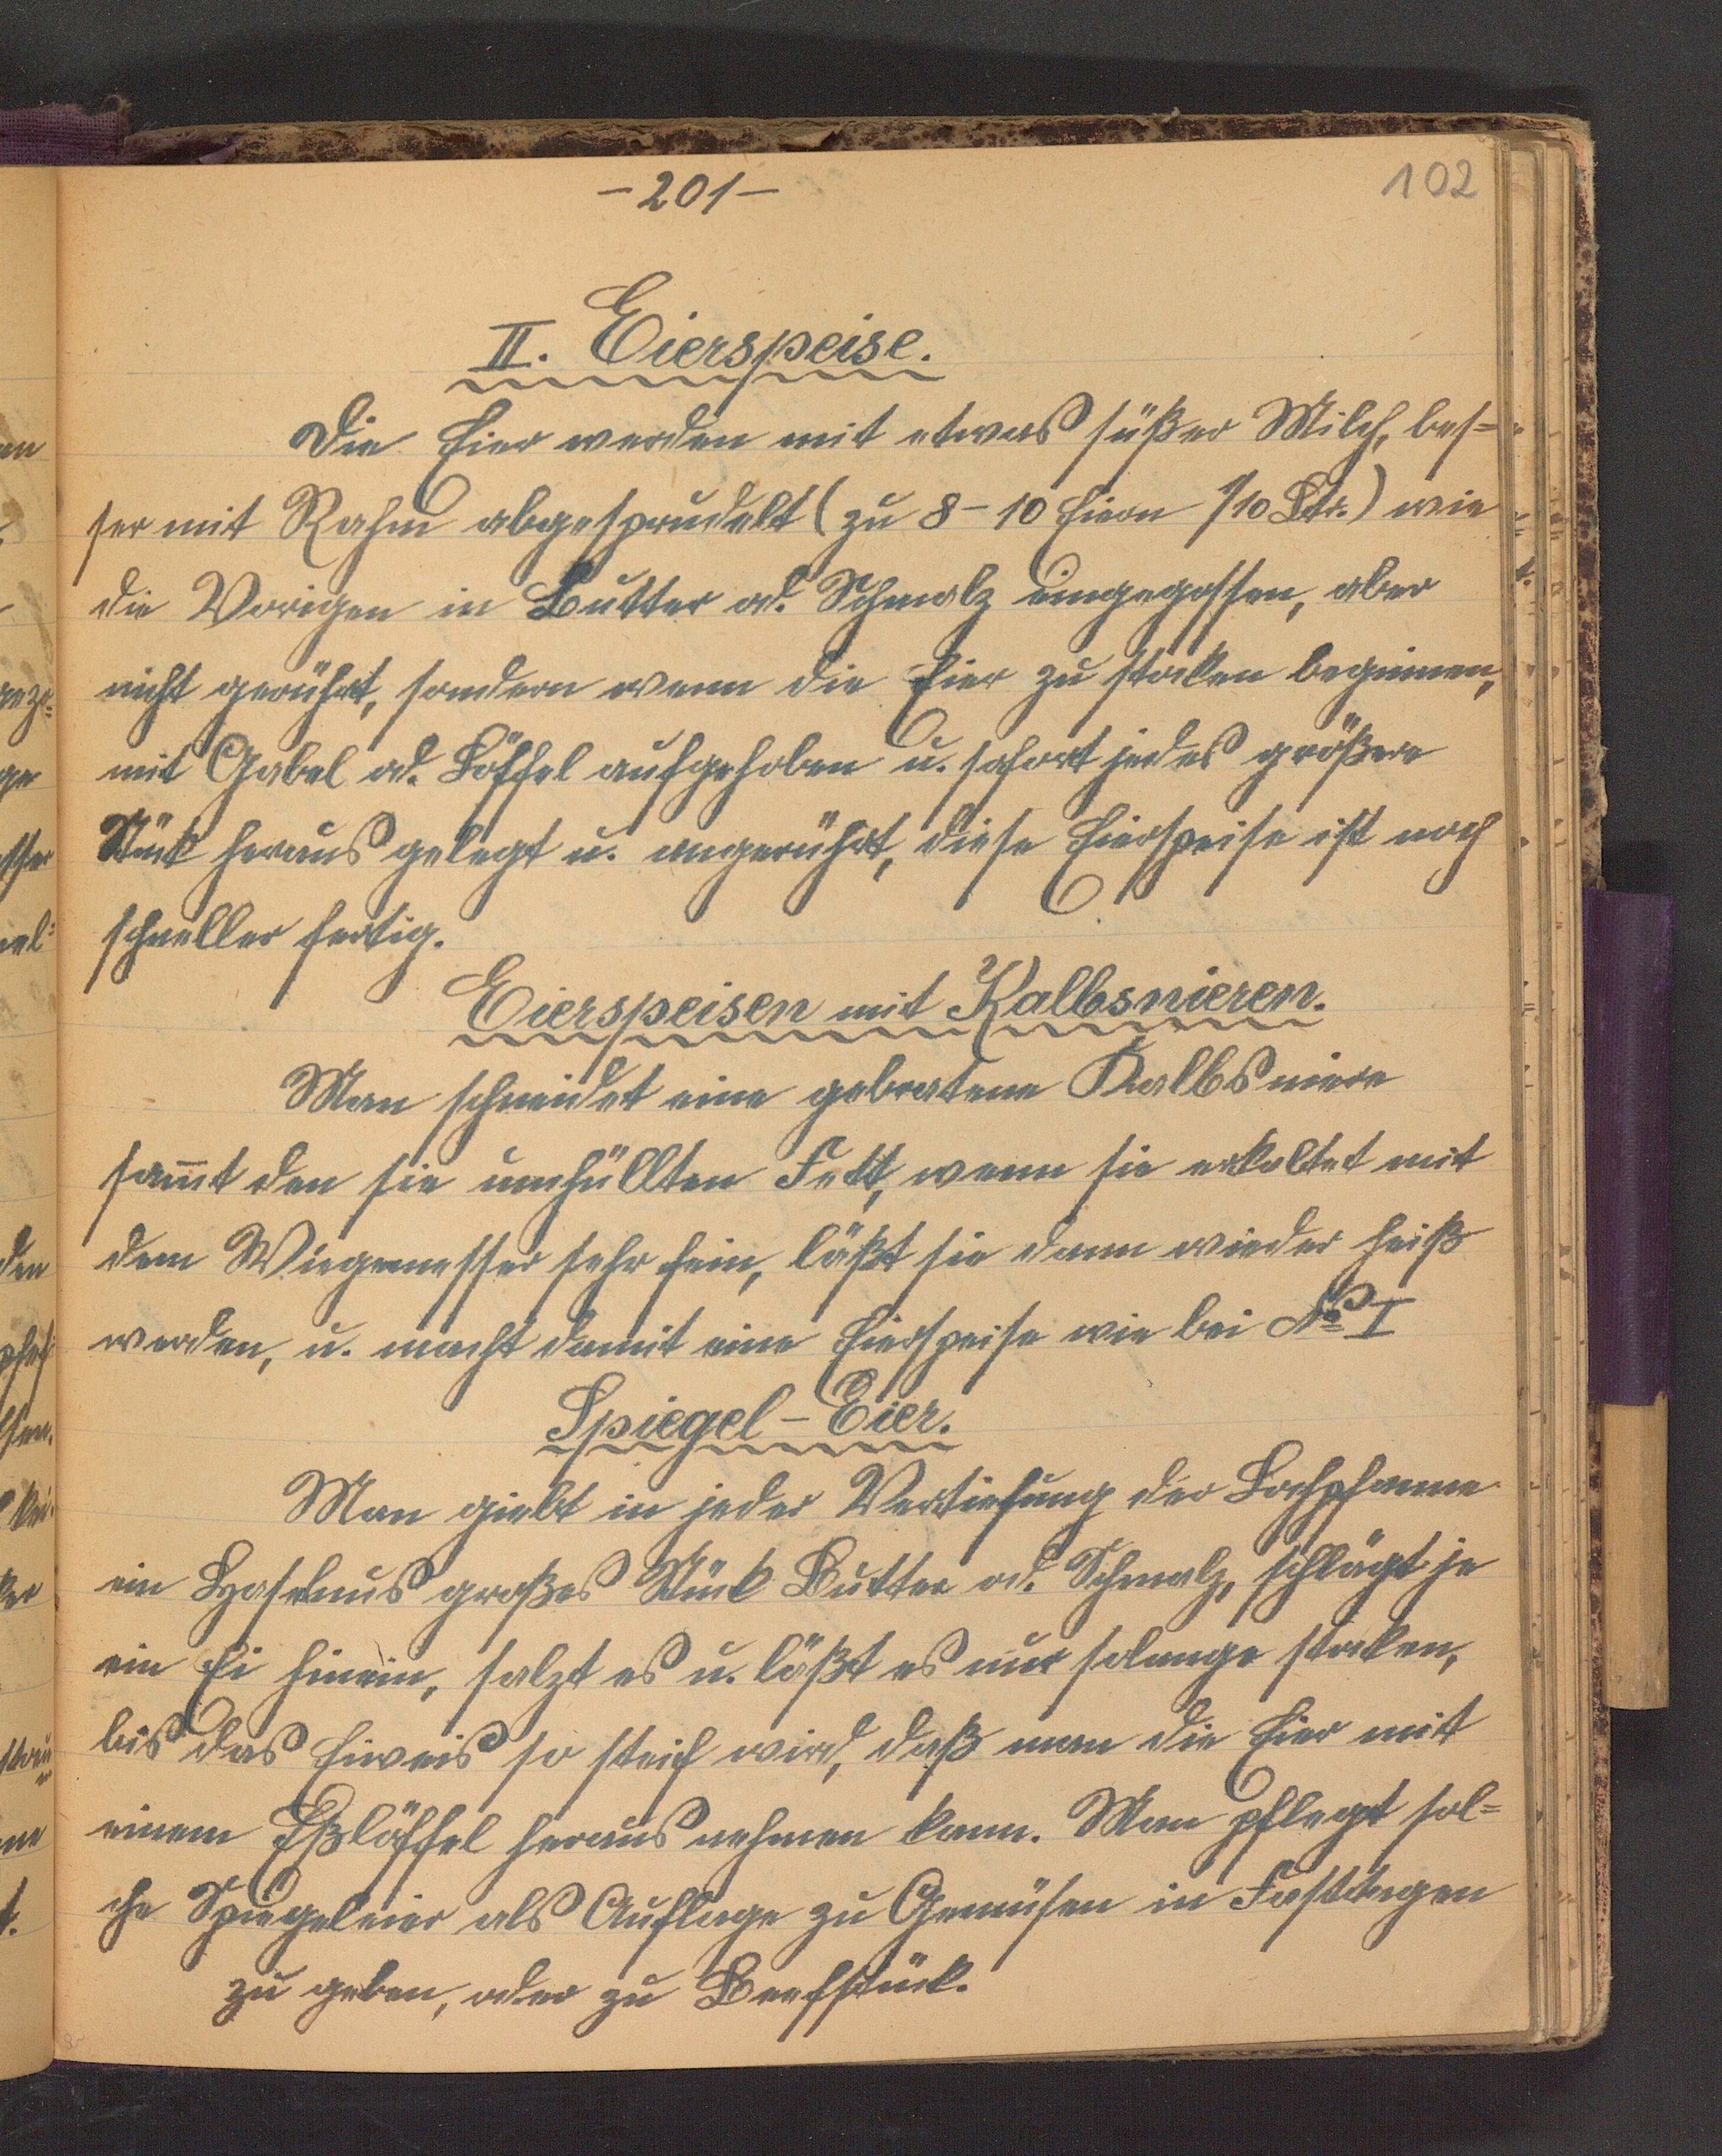 -201-
102
II. Eierspeise.
Die Eier werden mit etwas süßer Milch, bes=
ser mit Rahm abgesprudelt (zu 8-10 Eiern 1/10 Ltr.) wie
die Vorigen in Butter od. Schmalz eingegossen, aber
nicht gerührt, sondern wenn die Eier zu stocken beginnen,
mit Gabel od. Löffel aufgehoben u. sofort jedes größere
Stück heraus gelegt u. angerührt, diese Eierspeise ist noch
schneller fertig.
Eierspeisen mit Kalbsnieren.
Man schneidet eine gebratene Kalbsniere
sam̅t den sie umhüllten Fett, wenn sie erkaltet mit
dem Wiegemesser sehr fein, läßt sie dann wieder heiß
werden, u. macht damit eine Eierspeise wie bei No I
Spiegel-Eier.
Man giebt in jeder Vertiefung der Lochpfanne
ein Haselnus großes Stück Butter od. Schmalz, schlägt je
ein Ei hinein, salzt es u. läßt es nur solange stocken,
bis das Eiweis so steif wird, daß man die Eier mit
einem Eßlöffel heraus nehmen kann. Man pflegt sol=
che Spiegeleier als Auflage zu Gemüsen in Fasttagen
zu geben, oder zu Beefstück.